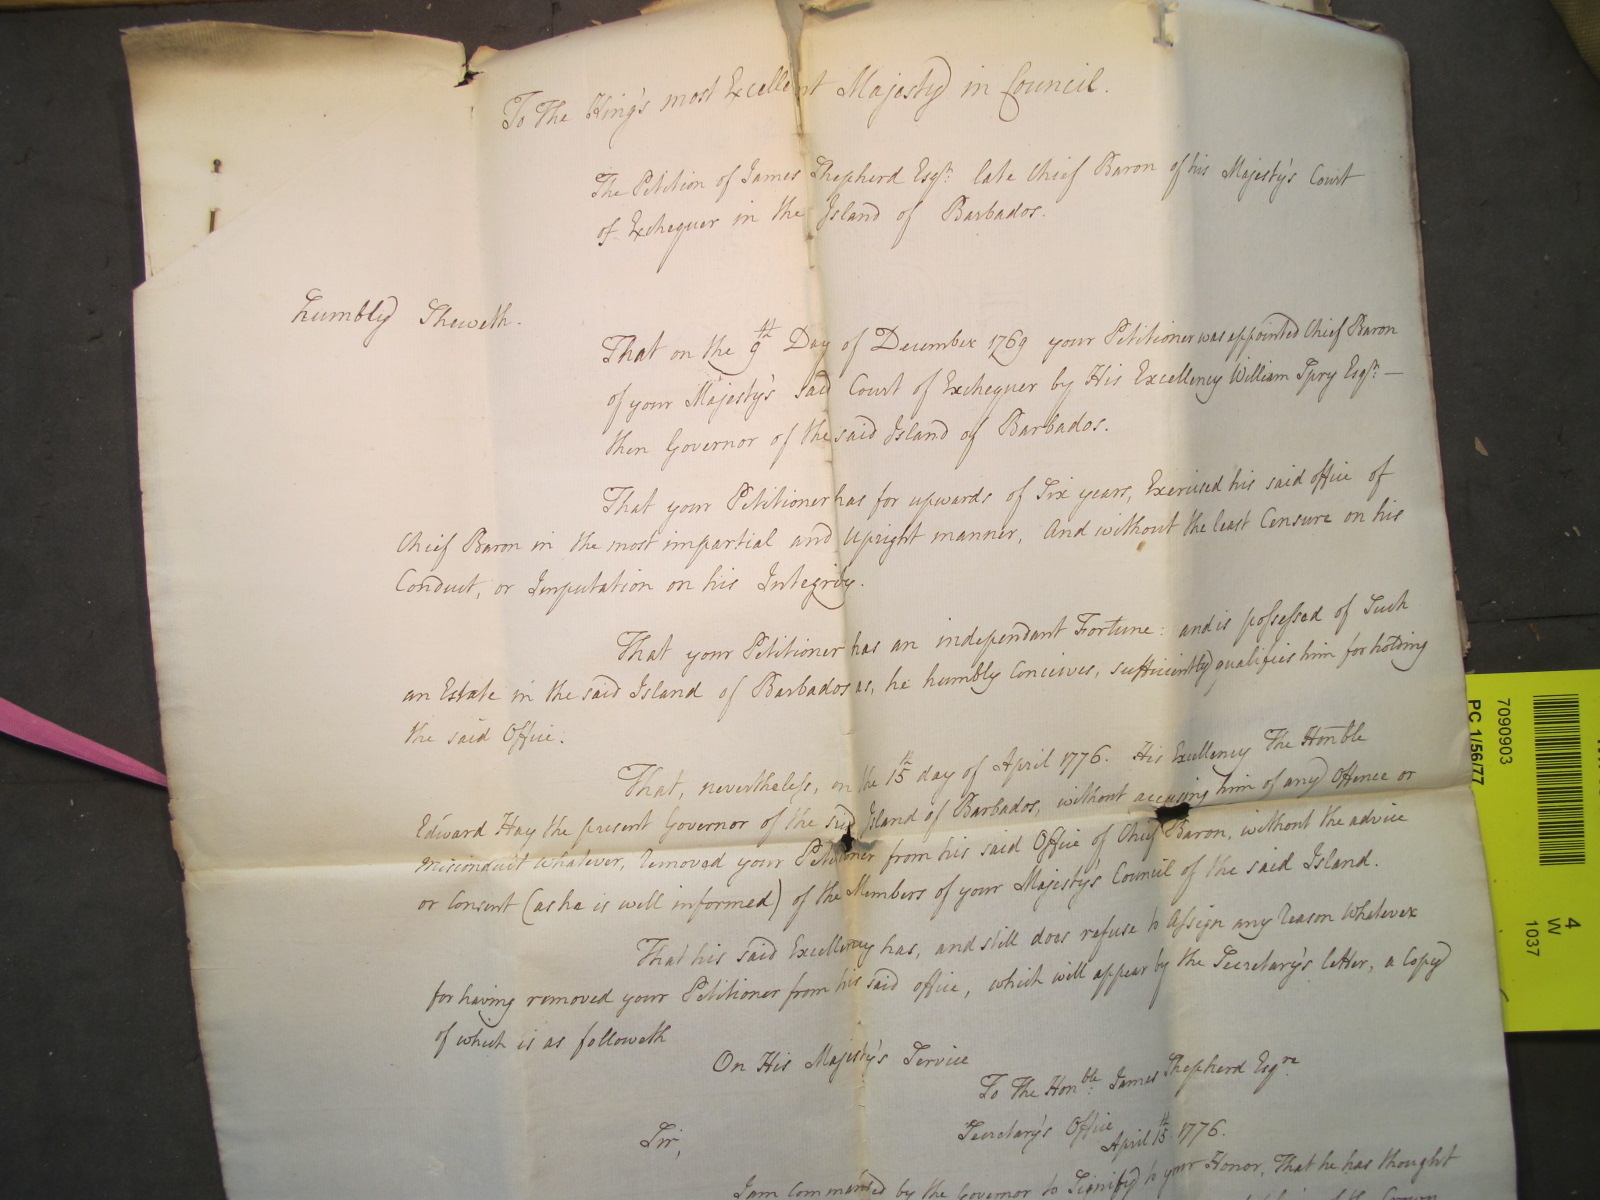 To The King's most Excellent Majesty in Council.
The Petition of James Shepherd Esqr. late Chief Baron of his Majesty's Court
of Exchequer in the Island of Barbados.
humbly Sheweth.
That on the 9th Day of December 1769 your Petitioner was appointed Chief Baron
of your Majesty's said Court of Exchequer by His Excellency William Spry Esqr. —
then Governor of the said Island of Barbados.
That your Petitioner has for upwards of Six years, Exercised his said office of
Chief Baron in the most impartial and Upright manner, And without the least Censure on his
Conduct, or Imputation on his Integrity.
That your Petitioner has an independant Fortune: and is possessed of Such
an Estate in the said Island of Barbados as, he humbly Conceives, sufficiently qualifies him for holding
the said Office.
That, nevertheless, on the 15th day of April 1776. His Excellency The Honble
Edward Hay the present Governor of the said Island of Barbados, without accusing him of any Offence or
misconduct whatever, removed your Petitioner from his said Office of Chief Baron, without the advice
or Consent (as he is well informed) of the Members of your Majesty's Council of the said Island.
That his said Excellency has, and still does refuse to Assign any reason Whatever
for having removed your Petitioner from his said office, which will appear by the Secretary's letter, a Copy
of which is as followeth
On His Majesty's Service
To The Honble. James Shepherd Esqre
Secretary's Office
April 15th 1776.
Sir,
I am Commanded by the Governor to Signify to your Honor, That he has thought
the Crown
7090903
PC 1/56/77
4
W
1037